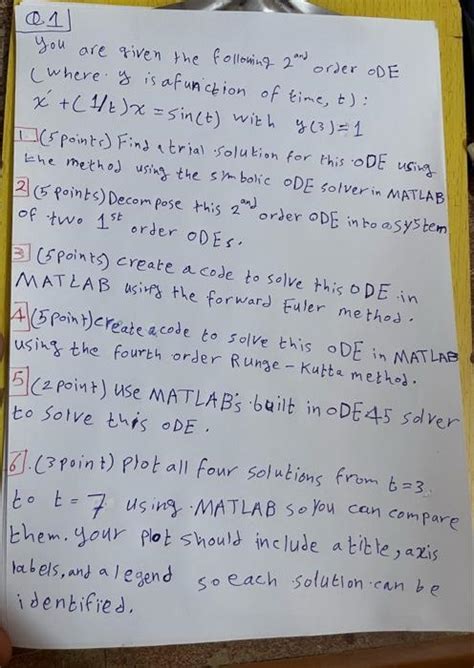 Q1
you are given the following 2nd order ODE
(where y is a function of time, t):
x' + (1/t)x = sin(t) with y(3)=1
1 (5 points) Find a trial solution for this ODE using
the method using the symbolic ODE solver in MATLAB
2 (5 points) Decompose this 2nd order ODE into a system
of two 1st order ODEs.
3 (5 points) create a code to solve this ODE in
MATLAB using the forward Euler method.
4 (5 point) create a code to solve this ODE in MATLAB
using the fourth order Runge-Kutta method.
5 (2 point) use MATLAB's built in ODE45 solver
to solve this ODE.
6. (3 point) plot all four solutions from t=3
to t=7 using MATLAB so you can compare
them. your plot should include a title, axis
labels, and a legend so each solution can be
identified.